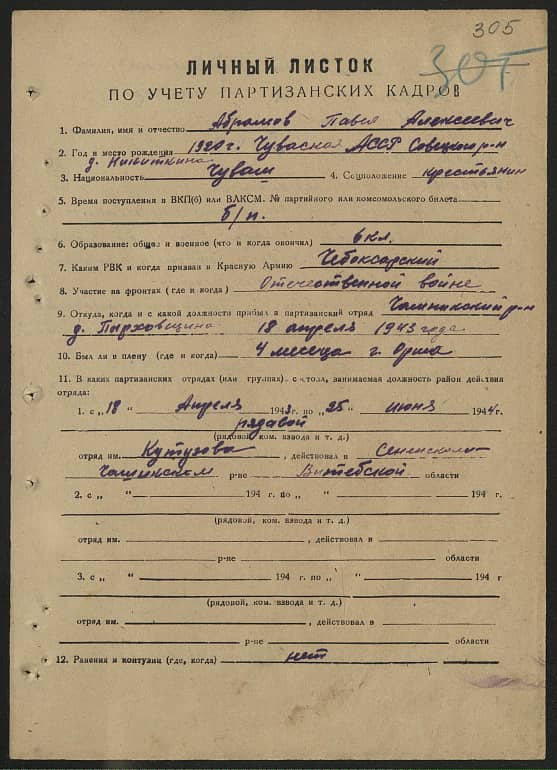 305
305
ЛИЧНЫЙ ЛИСТОК
ПО УЧЕТУ ПАРТИЗАНСКИХ КАДРОВ
1. Фамилия, имя и отчество Абрамов Павел Алексеевич
2. Год и место рождения 1920 г. Чувасская АССР Совецкий р-н
д. Никиткина
3. Национальность Чуваш 4. Соцположение крестьянин
5. Время поступления в ВКП(б) или ВЛКСМ. № партийного или комсомольского билета
б/п.
6. Образование: общее и военное (что и когда окончил) 6 кл.
7. Каким РВК и когда призван в Красную Армию Чебоксарский
8. Участие на фронтах (где и когда) Отечественной войне
9. Откуда, когда и с какой должности прибыл в партизанский отряд Чашникский р-н
д. Пырховщина 18 апреля 1943 года.
10. Был ли в плену (где и когда) 4 месеца г. Орша
11. В каких партизанских отрядах (или группах) состоял, занимаемая должность район действия
отряда:
1. с „18 “ Апреля 1943 г. по „25“ июня 1944 г.
рядавой
(рядовой, ком. взвода и т. д.)
отряд им. Кутузова , действовал в Сененском-
Чашинском р-не Витебской области
2. с „ “ 194 г. по „ “ 194 г.
(рядовой, ком. взвода и т. д.)
отряд им. , действовал в
р-не области
3. с „ “ 194 г. по „ “ 194 г
(рядовой, ком. взвода и т. д.)
отряд им. , действовал в
р-не области
12. Ранения и контузии (где, когда) нет